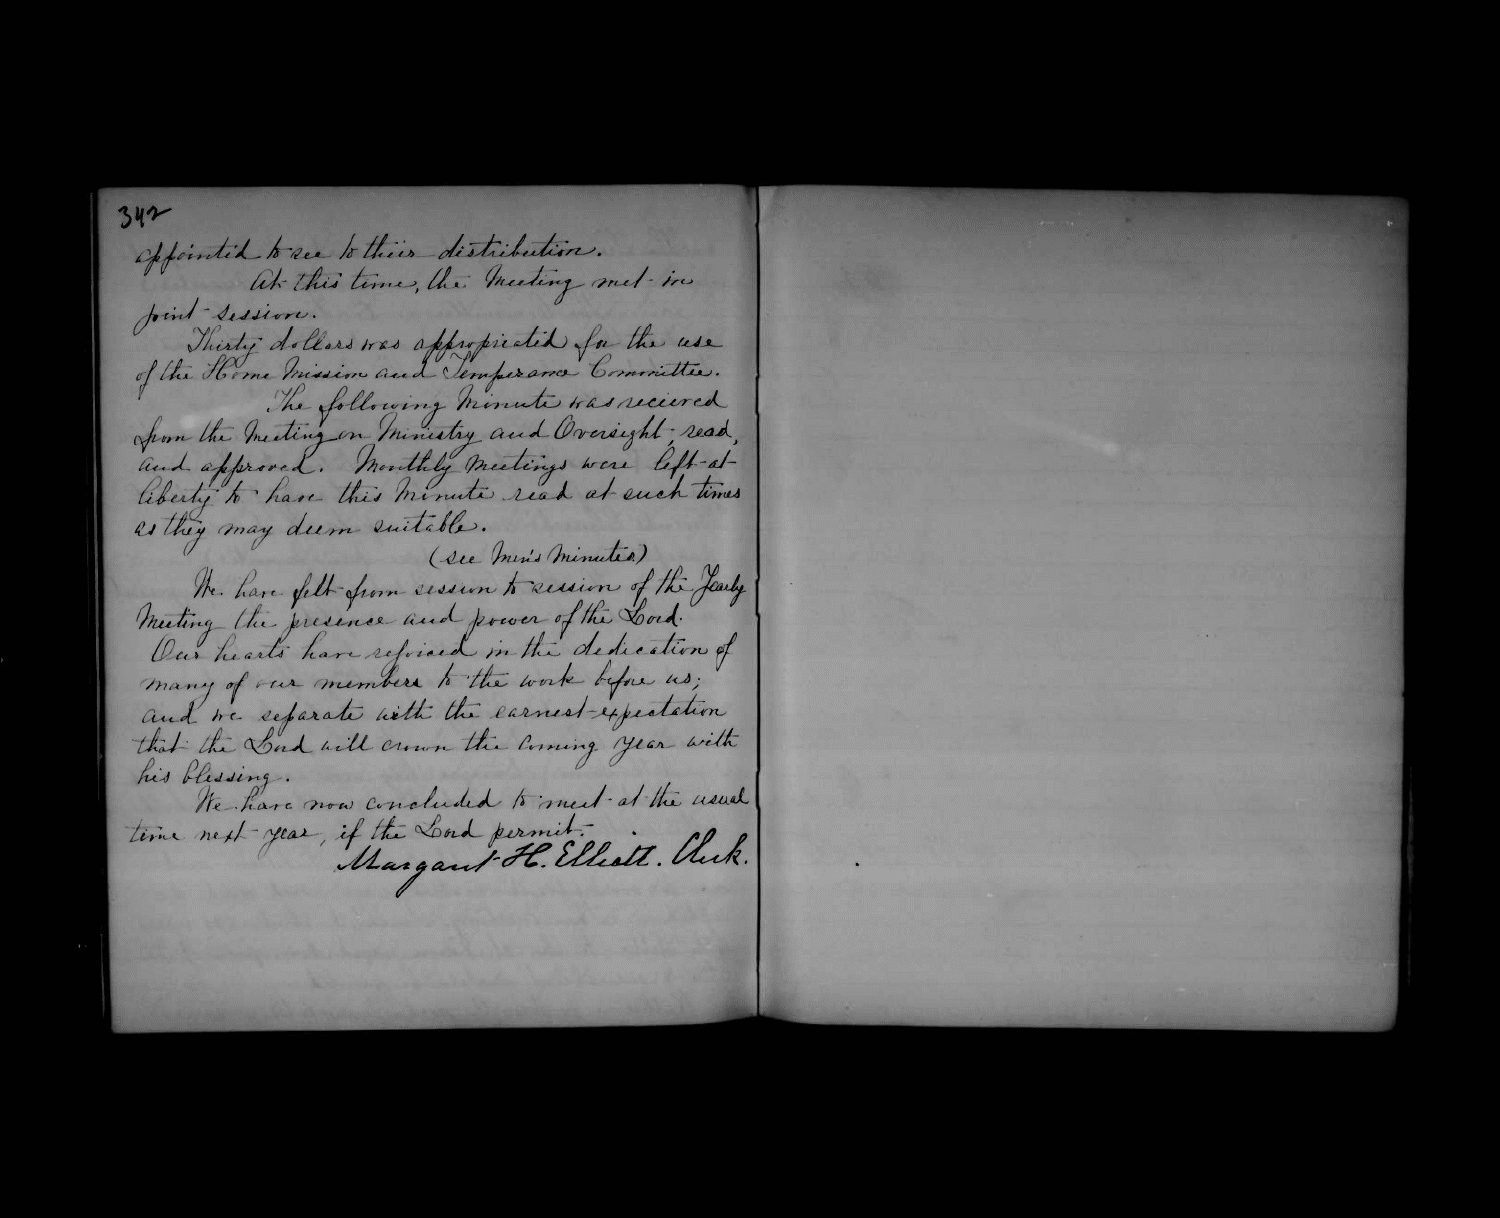 342
appointed to see to their distribution.
At this time, the Meeting met in
joint session.
Thirty dollars was appropiated for the use
of the Home Mission and Temperance Committee.
The following Minute was recieved
from the Meeting on Ministry and Oversight, read,
and approved. Monthly Meetings were left at
liberty to have this Minute read at such times
as they may deem suitable.
(see Men's Minutes)
We have felt from session to session of the Yearly
Meeting the presence and power of the Lord.
Our hearts have rejoiced in the dedication of
many of our members to the work before us;
and we separate with the earnest expectation
that the Lord will crown the coming year with
his blessing.
We have now concluded to meet at the usual
time next year, if the Lord permit.
Margaret H. Elliott. Clerk.